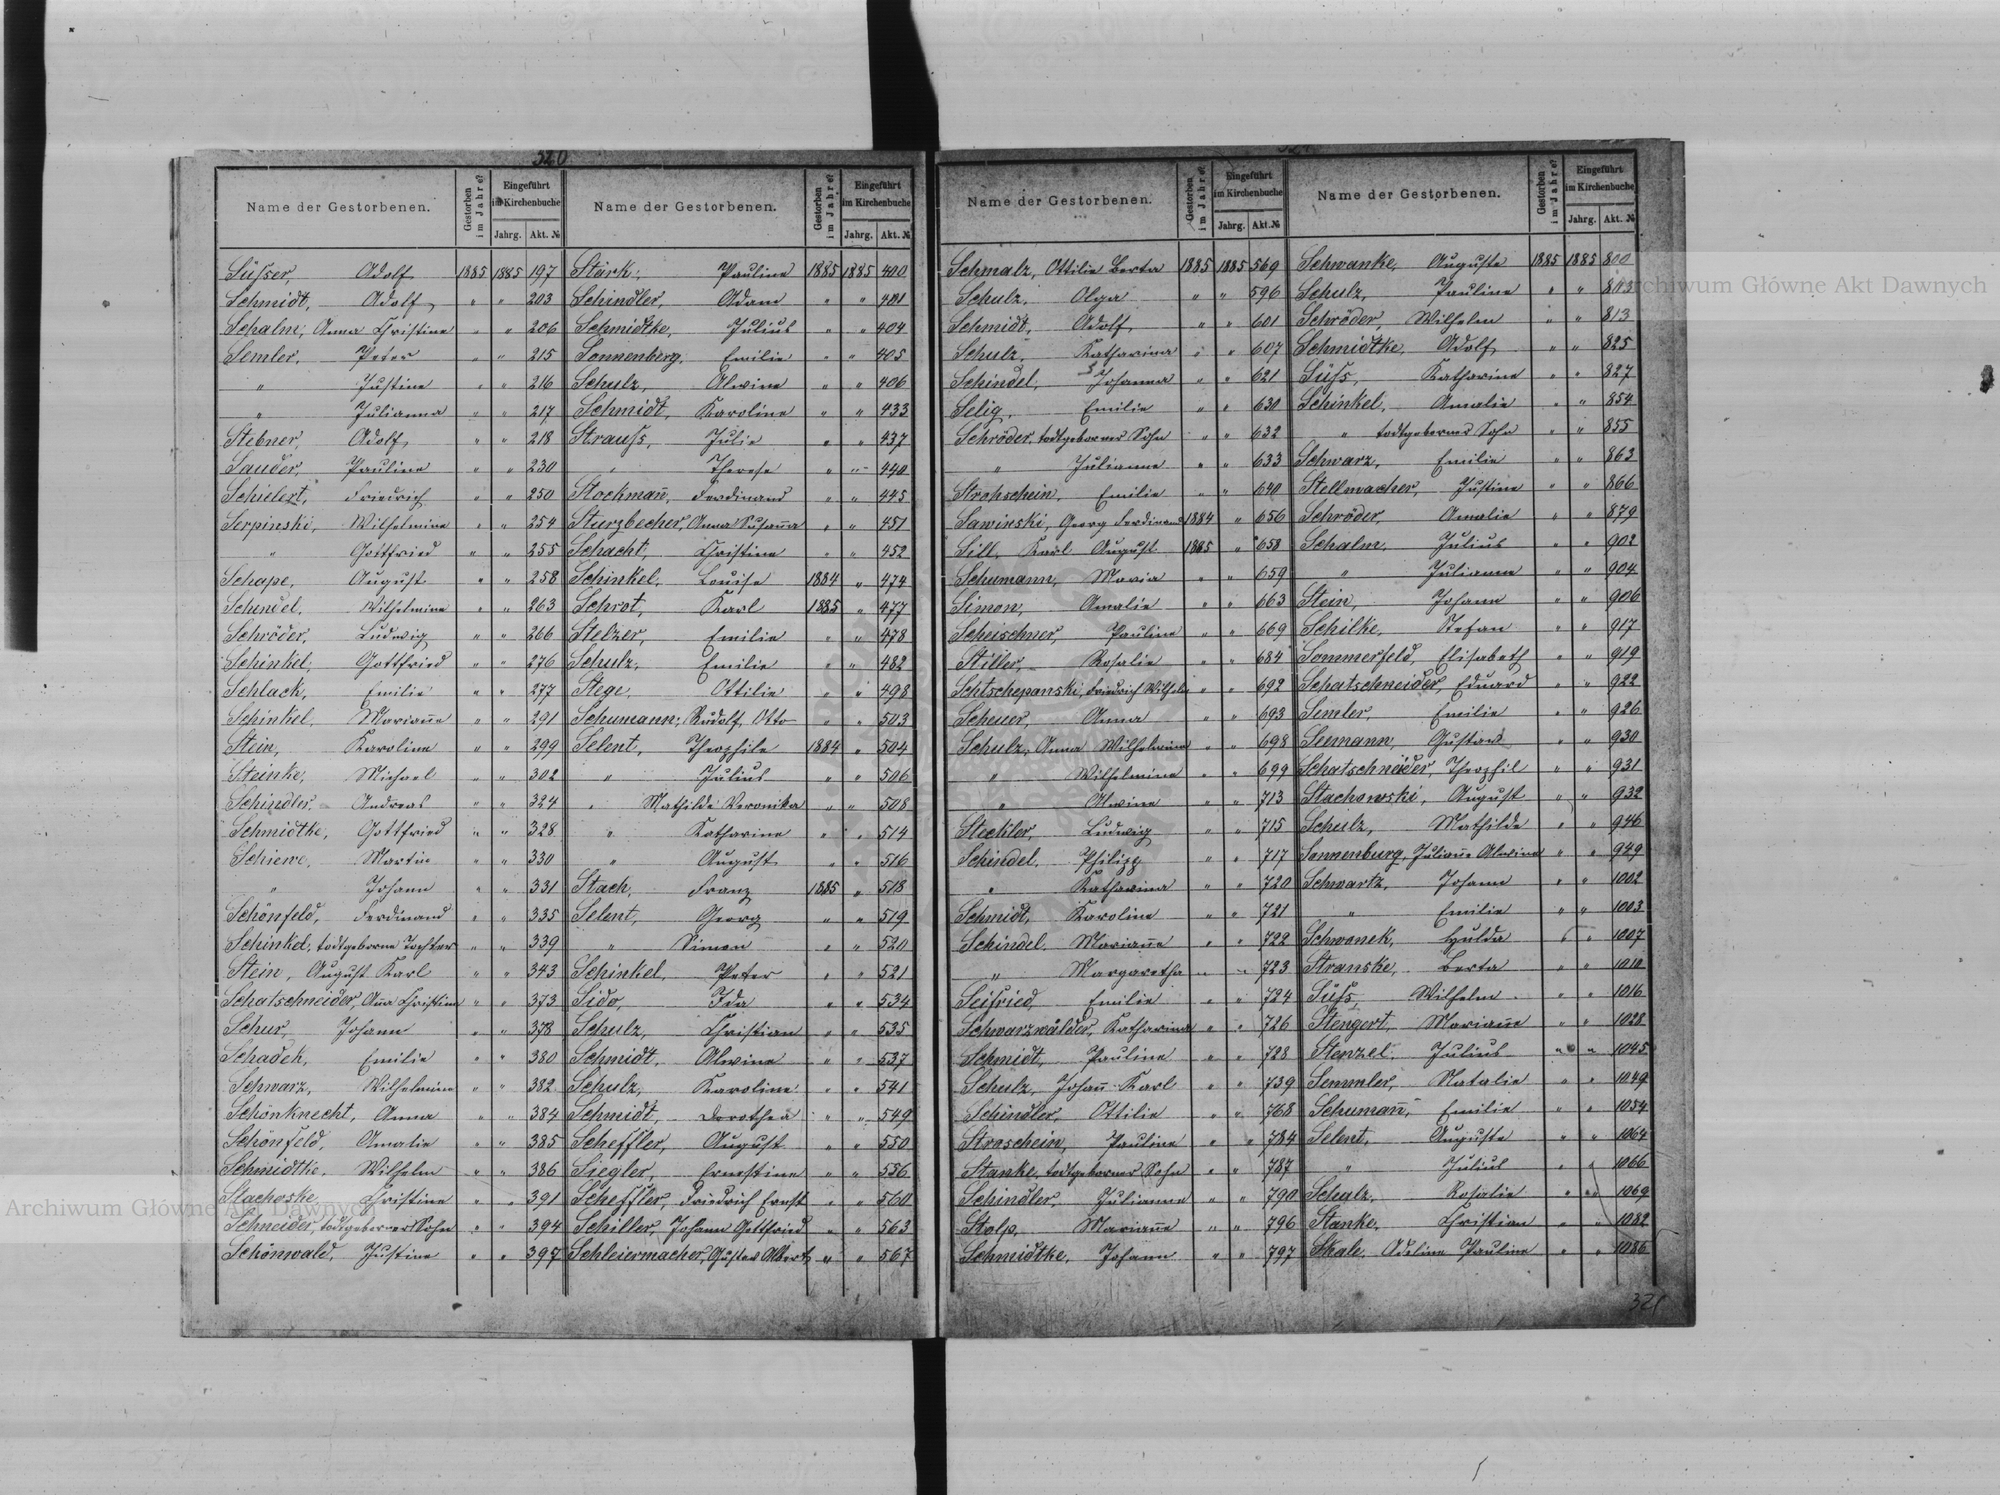 320
Name der Gestorbenen. Gestorben im Jahre? Eingeführt im Kirchenbuche Jahrg. Akt. №
Süſser, Adolf 1885 1885 197
Schmidt, Adolf " " 203
Schalm, Anna Christine " " 206
Semler, Peter " " 215
" Justine " " 216
" Julianna " " 217
Stebner, Adolf " " 218
Sauder, Pauline " " 230
Schielext, Friedrich " " 250
Serpinski, Wilhelmine " " 254
" Gottfried " " 255
Schape, August " " 258
Schindel, Wilhelmine " " 263
Schröder, Ludwig " " 266
Schinkel, Gottfried " " 276
Schlack, Emilie " " 277
Schinkel, Marianne " " 291
Stein, Karoline " " 299
Steinke, Michael " " 302
Schindler, Andreas " " 324
Schmidtke, Gottfried " " 328
Schiewe, Martin " " 330
" Johann " " 331
Schönfeld, Ferdinand " " 335
Schinkel, todtgeborne Tochter " " 339
Stein, August Karl " " 343
Schatschneider, Anna Christine " " 373
Schur Johann " " 378
Schadek, Emilie " " 380
Schwarz, Wilhelmine " " 382
Schönknecht, Anna " " 384
Schönfeld, Amalie " " 385
Schmidtke, Wilhelm " " 386
Stachoske, Christine " " 391
Schneider, todtgeborner Sohn " " 394
Schönwald, Justine " " 397
Name der Gestorbenen. Gestorben im Jahre? Eingeführt im Kirchenbuche Jahrg. Akt. №
Stärk, Pauline 1885 1885 400
Schindler, Adam " " 401
Schmidtke, Julius " " 404
Sonnenberg, Emilie " " 405
Schulz, Alwine " " 406
Schmidt, Karoline " " 433
Strauſs, Julie " " 437
" Therese " " 440
Stockmañ, Ferdinand " " 445
Sturzbecher, Anna Susaña " " 451
Schacht, Christine " " 452
Schinkel, Louise 1884 " 474
Schrot, Karl 1885 " 477
Stelzer, Emilie " " 478
Schulz, Emilie " " 482
Stege, Ottilie " " 498
Schumann, Rudolf Otto " " 503
Selent, Theophile 1884 " 504
" Julius " " 506
" Mathilde Veronika " " 508
" Katharine " " 514
" August " " 516
Stach, Franz 1885 " 518
Selent, Georg " " 519
" Simon " " 520
Schinkel, Peter " " 521
Sido, Ida " " 534
Schulz, Christian " " 535
Schmidt, Alwine " " 537
Schulz, Karoline " " 541
Schmidt, Dorothea " " 549
Scheffler, August " " 550
Siegler, Ernestine " " 556
Scheffler, Friedrich Ernst " " 560
Schiller, Johann Gottfried " " 563
Schleiermacher, Gustav Albert " " 567
Name der Gestorbenen. Gestorben im Jahre? Eingeführt im Kirchenbuche Jahrg. Akt. №
Schmalz, Ottilie Berta 1885 1885 569
Schulz, Olga " " 596
Schmidt, Adolf " " 601
Schulz, Katharina " " 607
Schindel, Johanna " " 621
Selig, Emilie " " 630
Schröder, todtgeborner Sohn " " 632
" Julianne " " 633
Strohschein, Emilie " " 640
Sawinski, Georg Ferdinand 1884 " 656
Sill, Karl August 1885 " 658
Schumann, Maria " " 659
Simon, Amalie " " 663
Scheischner, Pauline " " 669
Stiller, Rosalie " " 684
Schtschepanski, Friedrich Wilhelm " " 692
Scheuer, Anna " " 693
Schulz, Anna Wilhelmine " " 698
" Wilhelmine " " 699
" Alwine " " 713
Steckler, Ludwig " " 715
Schindel, Philipp " " 717
" Katharina " " 720
Schmidt, Karoline " " 721
Schindel, Mariañe " " 722
" Margaretha " " 723
Seifried, Emilie " " 724
Schwarzwälder, Katharina " " 726
Schmidt, Pauline " " 728
Schulz, Johañ Karl " " 739
Schindler, Ottilie " " 768
Straschein, Pauline " " 784
Stanke, todtgeborner Sohn " " 787
Schindler, Julianne " " 790
Stolp, Mariañe " " 796
Schmidtke, Johann " " 797
Name der Gestorbenen. Gestorben im Jahre? Eingeführt im Kirchenbuche Jahrg. Akt. №
Schwanke, Auguste 1885 1885 800
Schulz, Pauline " " 803
Schröder, Wilhelm " " 813
Schmidtke, Adolf " " 825
Süſs, Katharine " " 827
Schinkel, Amalie " " 854
" todtgeborner Sohn " " 855
Schwarz, Emilie " " 863
Stellmacher, Justine " " 866
Schröder, Amalie " " 879
Schalm, Julius " " 902
" Julianne " " 904
Stein, Johann " " 906
Schilke, Stefan " " 917
Sommerfeld, Elisabeth " " 919
Schatschneider, Eduard " " 922
Semler, Emilie " " 926
Seemann, Gustav " " 930
Schatschneider, Theophil " " 931
Stachowski, August " " 932
Schulz, Mathilde " " 946
Sannenburg, Juliañe Alwine " " 949
Schwartz, Johann " " 1002
" Emilie " " 1003
Schwanek, Hulda " " 1007
Stranske, Berta " " 1010
Süſs, Wilhelm " " 1016
Stengert, Mariañe " " 1028
Stenzel, Julius " " 1045
Semmler, Natalie " " 1049
Schumañ, Emilie " " 1054
Selent, Auguste " " 1064
" Julius " " 1066
Schulz, Rosalie " " 1069
Stanke, Christian " " 1082
Skale, Adeline Pauline " " 1086
321
Archiwum Główne Akt Dawnych
Archiwum Główne Akt Dawnych